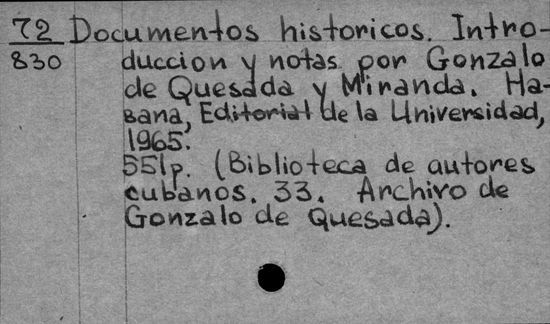 72 Documentos historicos. Intro-
830 duccion y notas por Gonzalo
de Quesada y Miranda. Ha-
bana, Editorial de la Universidad,
1965.
551p. (Biblioteca de autores
cubanos. 33. Archivo de
Gonzalo de Quesada).